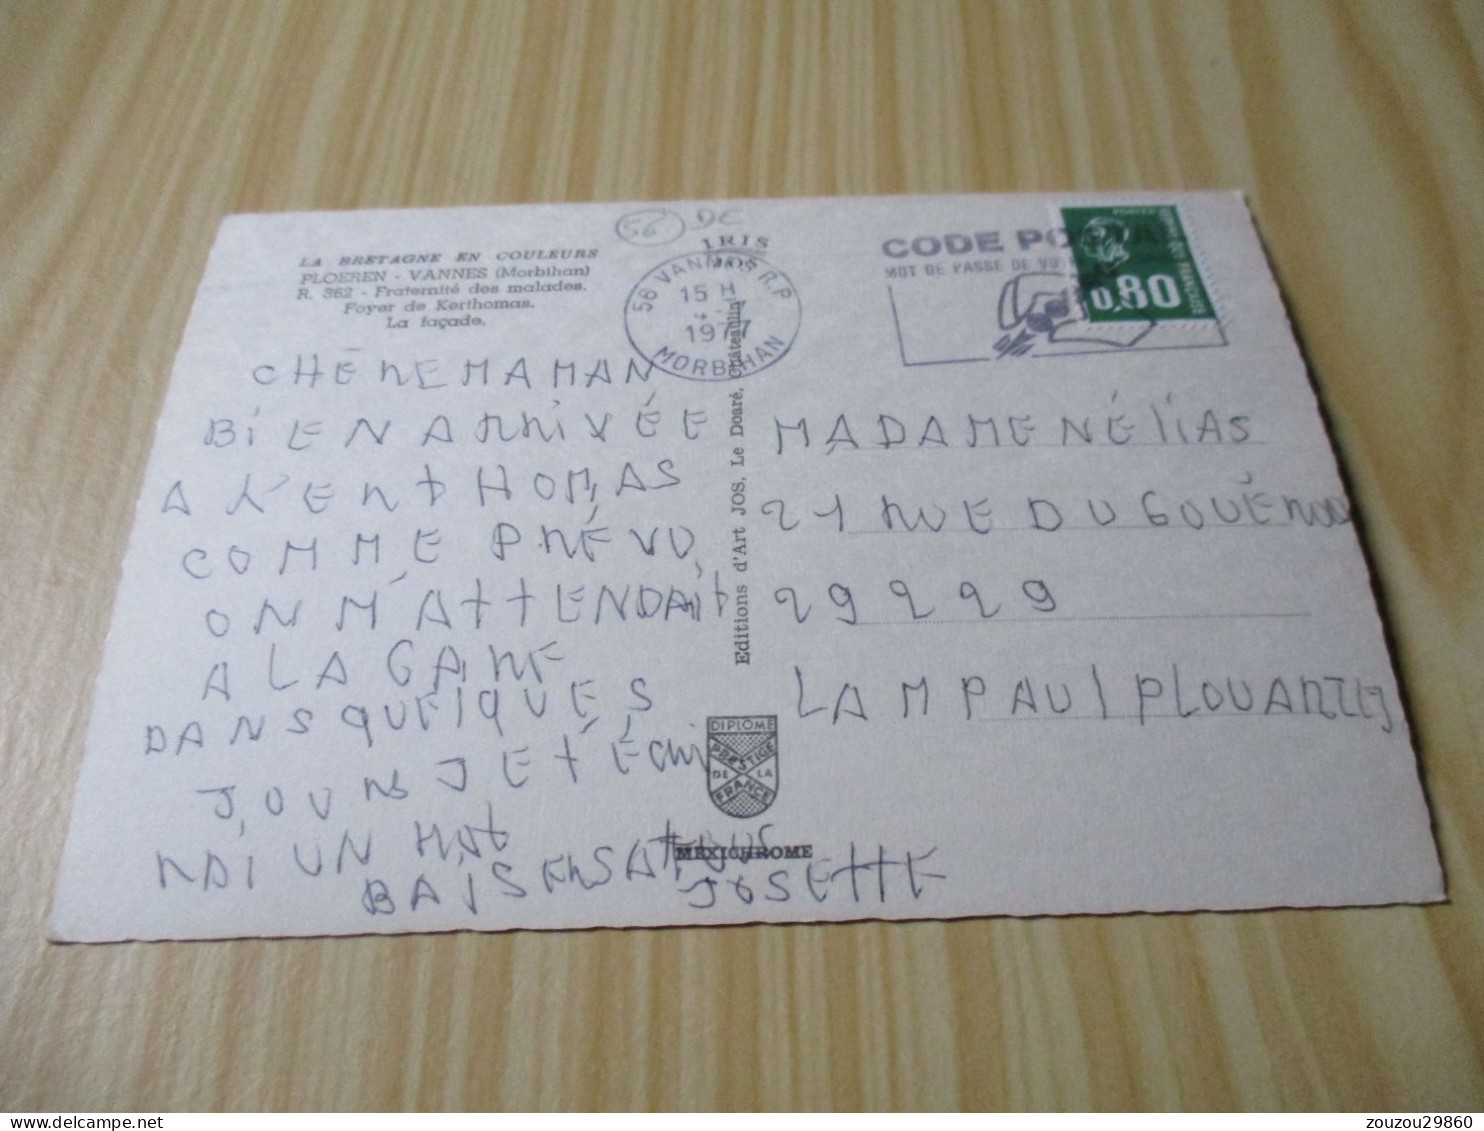 56 DC
LA BRETAGNE EN COULEURS
PLOEREN - VANNES (Morbihan)
R. 362 - Fraternité des malades.
Foyer de Kerthomas.
La façade.
IRIS
56 VANNES R.P
15 H
1977
MORBIHAN
CODE POSTAL
MOT DE PASSE DE VO
POSTES
0,80
CHÈRE MAMAN
BIEN ARRIVÉE
A KENTHOMAS
COMME PRÉVU
ON M'ATTENDAIT
A LA GARE
DANS QUELQUES
JOURS JE T'ÉCRI
RAI UN MOT
BAISERS A TOUS
JOSETTE
Editions d'Art JOS, Le Doaré, Châteaulin
DIPLOME
PRESTIGE
DE LA
FRANCE
MEXICHROME
MADAME NÉLIAS
21 RUE DU GOUÉROU
29229
LAMPAUL PLOUARZEL
zouzou29860